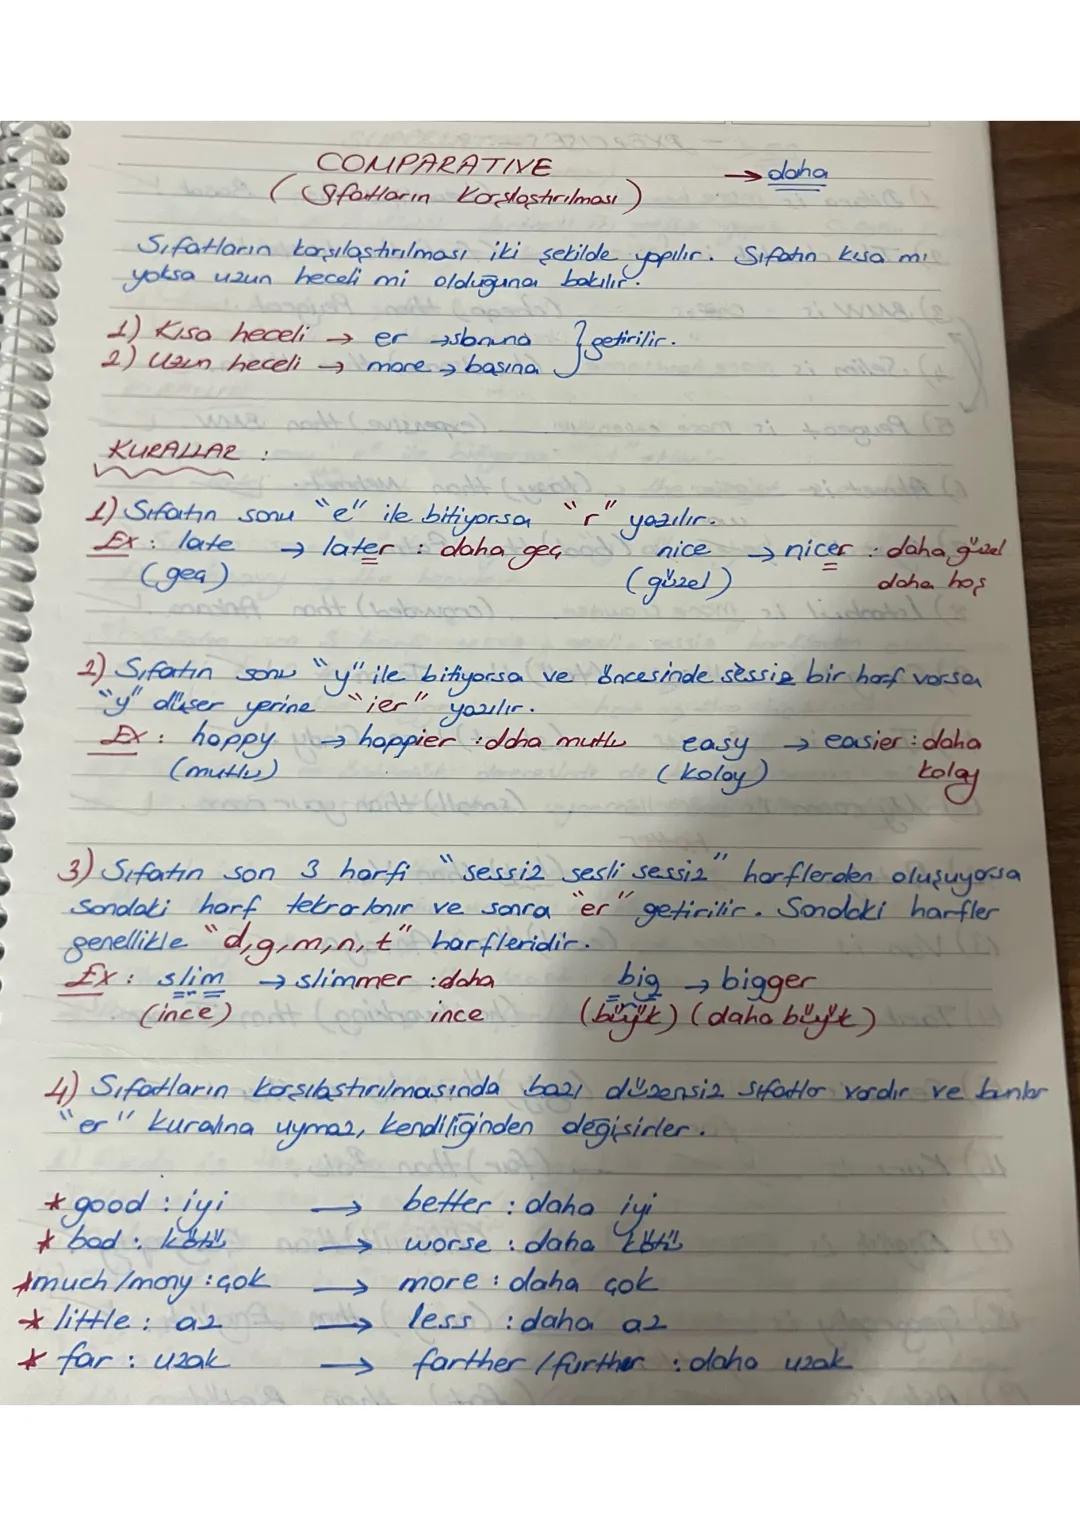 COMPARATIVE → daha
(Sıfatların Karşılaştırılması)
Sıfatların karşılaştırılması iki şekilde yapılır. Sıfatın kısa mı
yoksa uzun heceli mi olduğuna bakılır.
1) Kısa heceli → er → sonuna } getirilir.
2) Uzun heceli → more → başına
KURALLAR :
1) Sıfatın sonu "e" ile bitiyorsa "r" yazılır.
Ex : late → later : daha geç nice → nicer : daha güzel
(geç) (güzel) daha hoş
2) Sıfatın sonu "y" ile bitiyorsa ve öncesinde sessiz bir harf varsa
"y" düşer yerine "ier" yazılır.
Ex : happy → happier : daha mutlu easy → easier : daha
(mutlu) (kolay) kolay
3) Sıfatın son 3 harfi "sessiz sesli sessiz" harflerden oluşuyorsa
sondaki harf tekrarlanır ve sonra "er" getirilir. Sondaki harfler
genellikle "d, g, m, n, t" harfleridir.
Ex : slim → slimmer : daha big → bigger
(ince) ince (büyük) (daha büyük)
4) Sıfatların karşılaştırılmasında bazı düzensiz sıfatlar vardır ve bunlar
"er" kuralına uymaz, kendiliğinden değişirler.
* good : iyi → better : daha iyi
* bad : kötü → worse : daha kötü
* much / many : çok → more : daha çok
* little : az → less : daha az
* far : uzak → farther / further : daha uzak